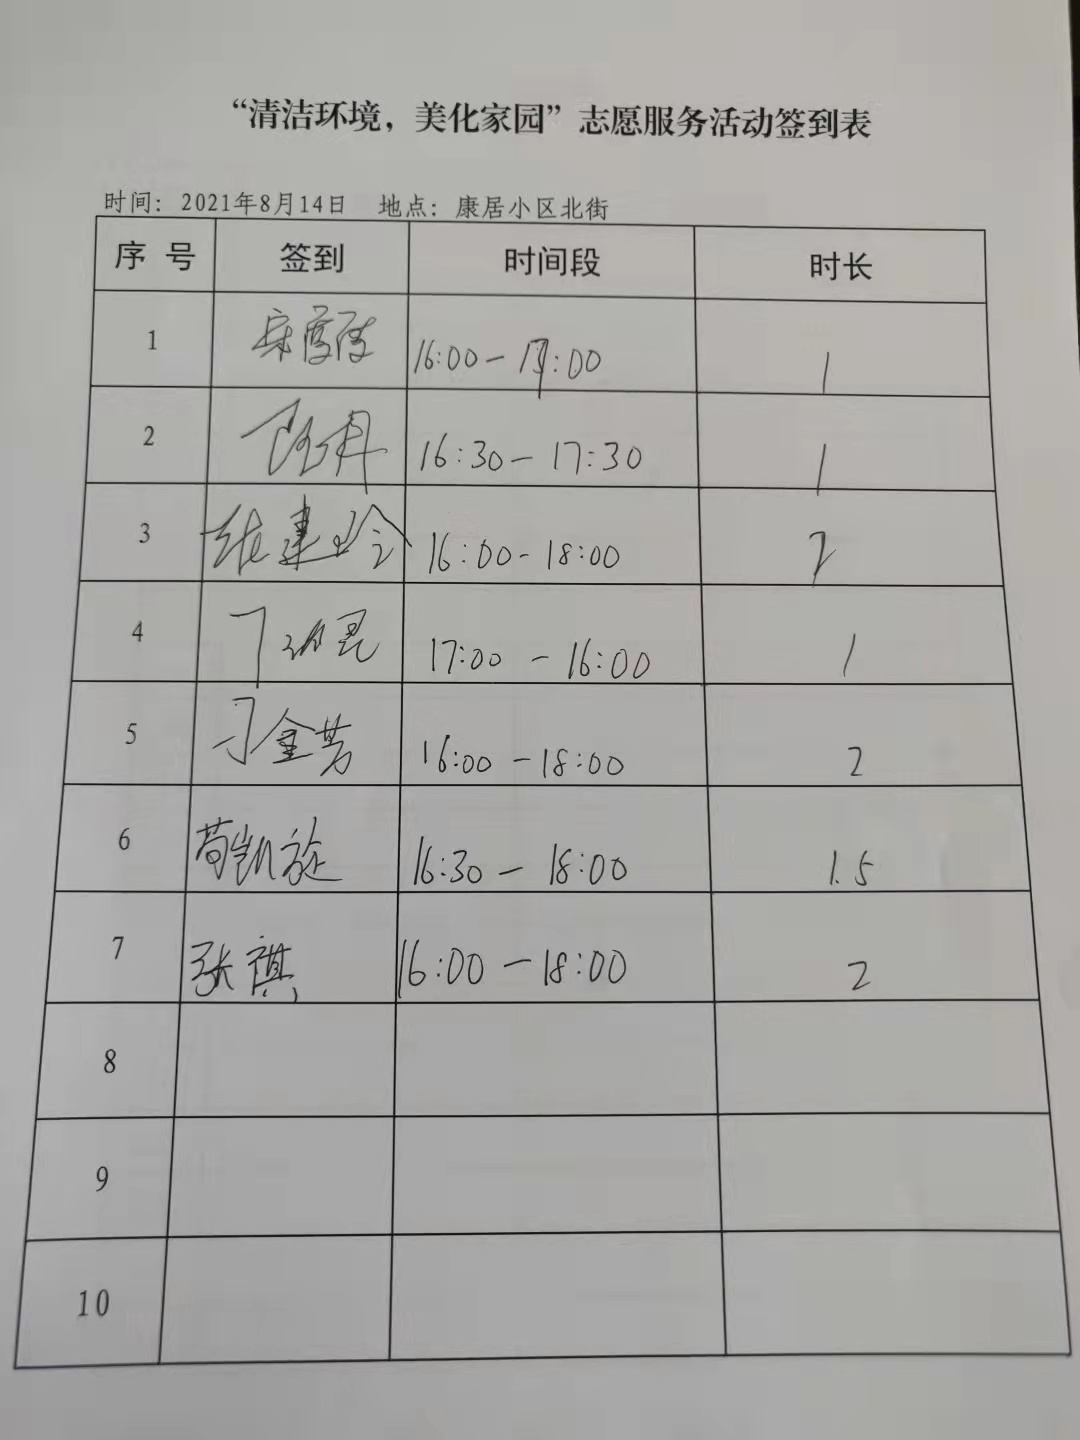 “清洁环境，美化家园”志愿服务活动签到表
时间：2021年8月14日 地点：康居小区北街
序号 签到 时间段 时长
1 16:00-17:00 1
2 16:30-17:30 1
3 16:00-18:00 2
4 17:00-16:00 1
5 刁金芳 16:00-18:00 2
6 苟凯旋 16:30-18:00 1.5
7 张祺 16:00-18:00 2
8
9
10